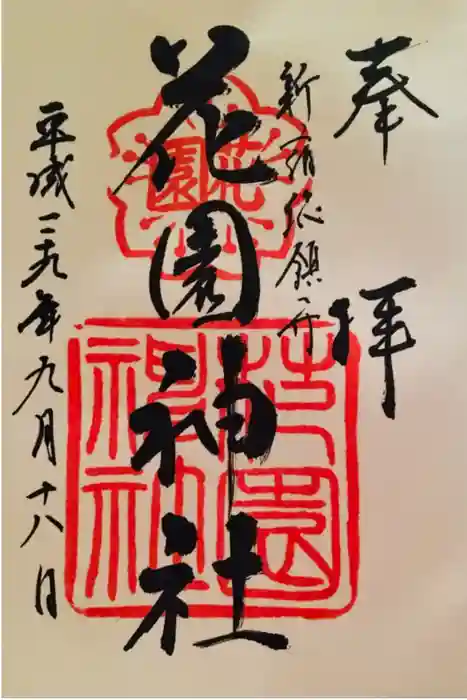 奉拝
新宿総鎮守
花園神社
平成二九年九月十八日
花園
花園
神社